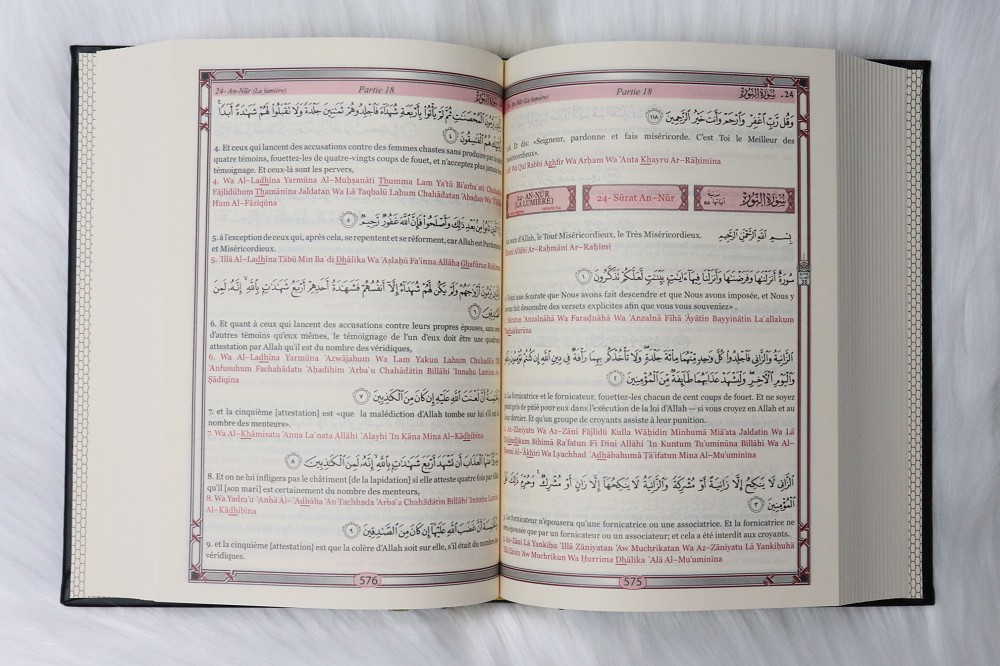 24. سورة النور
Partie 18
An-Nûr (La lumière)
وَقُل رَّبِّ ٱغْفِرْ وَٱرْحَمْ وَأَنتَ خَيْرُ ٱلرَّٰحِمِينَ ١١٨
Et dis: «Seigneur, pardonne et fais miséricorde. C'est Toi le Meilleur des
miséricordieux».
Wa Qul Rabbi Aghfir Wa Arĥam Wa 'Anta Khayru Ar–Rāĥimīna
سورة النور
24- Sūrat An–Nūr
AN-NÛR
(LA LUMIÈRE)
بِسْمِ ٱللَّهِ ٱلرَّحْمَٰنِ ٱلرَّحِيمِ
nom d'Allah, le Tout Miséricordieux, le Très Miséricordieux.
Allāhi Ar–Raĥmāni Ar–Raĥīmi
سُورَةٌ أَنزَلْنَٰهَا وَفَرَضْنَٰهَا وَأَنزَلْنَا فِيهَآ ءَايَٰتٍۭ بَيِّنَٰتٍ لَّعَلَّكُمْ تَذَكَّرُونَ ١
Voici une Sourate que Nous avons fait descendre et que Nous avons imposée, et Nous y
avons fait descendre des versets explicites afin que vous vous souveniez» .
Sūratun 'Anzalnāhā Wa Faradnāhā Wa 'Anzalnā Fīhā 'Āyātin Bayyinātin La`allakum
Tadhakkarūna
ٱلزَّانِيَةُ وَٱلزَّانِى فَٱجْلِدُوا۟ كُلَّ وَٰحِدٍ مِّنْهُمَا مِا۟ئَةَ جَلْدَةٍ وَلَا تَأْخُذْكُم بِهِمَا رَأْفَةٌ فِى دِينِ ٱللَّهِ إِن كُنتُمْ تُؤْمِنُونَ
وَٱلْيَوْمِ ٱلْءَاخِرِ وَلْيَشْهَدْ عَذَابَهُمَا طَآئِفَةٌ مِّنَ ٱلْمُؤْمِنِينَ ٢
La fornicatrice et le fornicateur, fouettez-les chacun de cent coups de fouet. Et ne soyez
pris de pitié pour eux dans l'exécution de la loi d'Allah — si vous croyez en Allah et au
dernier. Et qu'un groupe de croyants assiste à leur punition.
Az–Zāniyatu Wa Az–Zānī Fājlidū Kulla Wāĥidin Minhumā Miā'ata Jaldatin Wa Lā
Ta'khudhkum Bihimā Ra'fatun Fī Dīni Allāhi 'In Kuntum Tu'uminūna Billāhi Wa Al–
'Ākhiri Wa Lyachhad `Adhābahumā Ţā'ifatun Mina Al–Mu'uminīna
ٱلزَّانِى لَا يَنكِحُ إِلَّا زَانِيَةً أَوْ مُشْرِكَةً وَٱلزَّانِيَةُ لَا يَنكِحُهَآ إِلَّا زَانٍ أَوْ مُشْرِكٌ وَحُرِّمَ ذَٰلِكَ عَلَى
ٱلْمُؤْمِنِينَ ٣
Le fornicateur n'épousera qu'une fornicatrice ou une associatrice. Et la fornicatrice ne
sera épousée que par un fornicateur ou un associateur; et cela a été interdit aux croyants.
Az–Zānī Lā Yankiĥu 'Illā Zāniyatan 'Aw Muchrikatan Wa Az–Zāniyatu Lā Yankiĥuhā
'Illā Zānin 'Aw Muchrikun Wa Ĥurrima Dhālika `Alá Al–Mu'uminīna
575
سورة النور
Partie 18
24- An-Nûr (La lumière)
يَرْمُونَ ٱلْمُحْصَنَٰتِ ثُمَّ لَمْ يَأْتُوا۟ بِأَرْبَعَةِ شُهَدَآءَ فَٱجْلِدُوهُمْ ثَمَٰنِينَ جَلْدَةً وَلَا تَقْبَلُوا۟ لَهُمْ شَهَٰدَةً أَبَدًا
هُمُ ٱلْفَٰسِقُونَ ٤
4. Et ceux qui lancent des accusations contre des femmes chastes sans produire par la
quatre témoins, fouettez-les de quatre-vingts coups de fouet, et n'acceptez plus jamais
témoignage. Et ceux-là sont les pervers,
4. Wa Al–Ladhīna Yarmūna Al–Muĥşanāti Thumma Lam Ya'tū Bi'arba`ati Chuhadā'
Fājlidūhum Thamānīna Jaldatan Wa Lā Taqbalū Lahum Chahādatan 'Abadan Wa
Hum Al–Fāsiqūna
تَابُوا۟ مِنۢ بَعْدِ ذَٰلِكَ وَأَصْلَحُوا۟ فَإِنَّ ٱللَّهَ غَفُورٌ رَّحِيمٌ ٥
5. à l'exception de ceux qui, après cela, se repentent et se réforment, car Allah est Pardonneur
et Miséricordieux.
5. 'Illā Al–Ladhīna Tābū Min Ba`di Dhālika Wa 'Aşlaĥū Fa'inna Allāha Ghafūrun
يَرْمُونَ أَزْوَٰجَهُمْ وَلَمْ يَكُن لَّهُمْ شُهَدَآءُ إِلَّآ أَنفُسُهُمْ فَشَهَٰدَةُ أَحَدِهِمْ أَرْبَعُ شَهَٰدَٰتٍۭ بِٱللَّهِ إِنَّهُۥ لَمِنَ
ٱلصَّٰدِقِينَ ٦
6. Et quant à ceux qui lancent des accusations contre leurs propres épouses, sans
d'autres témoins qu'eux mêmes, le témoignage de l'un d'eux doit être une quadruple
attestation par Allah qu'il est du nombre des véridiques,
6. Wa Al–Ladhīna Yarmūna 'Azwājahum Wa Lam Yakun Lahum Chuhadā'u
'Anfusuhum Fachahādatu 'Aĥadihim 'Arba`u Chahādātin Billāhi 'Innahu Lamina
Şādiqīna
أَنَّ لَعْنَتَ ٱللَّهِ عَلَيْهِ إِن كَانَ مِنَ ٱلْكَٰذِبِينَ ٧
7. et la cinquième [attestation] est «que la malédiction d'Allah tombe sur lui s'il est
nombre des menteurs».
7. Wa Al–Khāmisatu 'Anna La`nata Allāhi `Alayhi 'In Kāna Mina Al–Kādhibīna
عَنْهَا ٱلْعَذَابَ أَن تَشْهَدَ أَرْبَعَ شَهَٰدَٰتٍۭ بِٱللَّهِ إِنَّهُۥ لَمِنَ ٱلْكَٰذِبِينَ ٨
8. Et on ne lui infligera pas le châtiment [de la lapidation] si elle atteste quatre fois par
qu'il [son mari] est certainement du nombre des menteurs,
8. Wa Yadra'u `Anhā Al–`Adhāba 'An Tachhada 'Arba`a Chahādātin Billāhi 'Innahu Lamina
Al–Kādhibīna
أَنَّ غَضَبَ ٱللَّهِ عَلَيْهَآ إِن كَانَ مِنَ ٱلصَّٰدِقِينَ ٩
9. et la cinquième [attestation] est que la colère d'Allah soit sur elle, s'il était du nombre
véridiques.
576